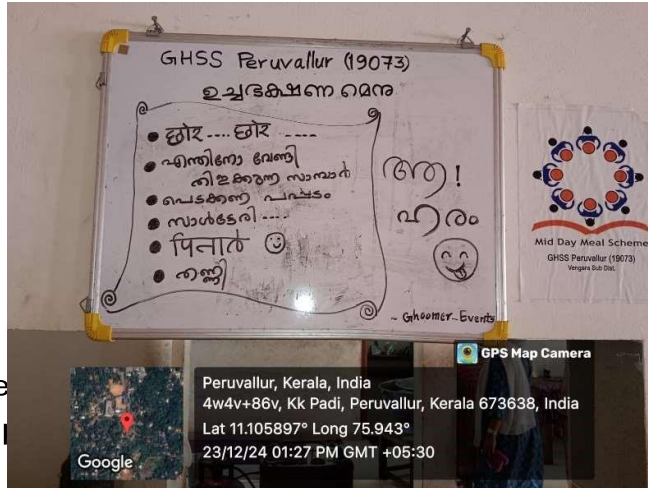 GHSS Peruvallur (19073)
ഉച്ചഭക്ഷണ മെനു
• छोर .... छोर .....
• എന്തിനോ വേണ്ടി
തിളക്കുന്ന സാമ്പാർ
• പെടക്കണ പപ്പടം
• സാൾട്ടേരി ....
• पिनार
• തണ്ണി
ആ!
ഹരം
~ Ghoomer-Events
Mid Day Meal Scheme
GHSS Peruvallur (19073)
Vengara Sub Dist.
GPS Map Camera
Google
Peruvallur, Kerala, India
4w4v+86v, Kk Padi, Peruvallur, Kerala 673638, India
Lat 11.105897° Long 75.943°
23/12/24 01:27 PM GMT +05:30